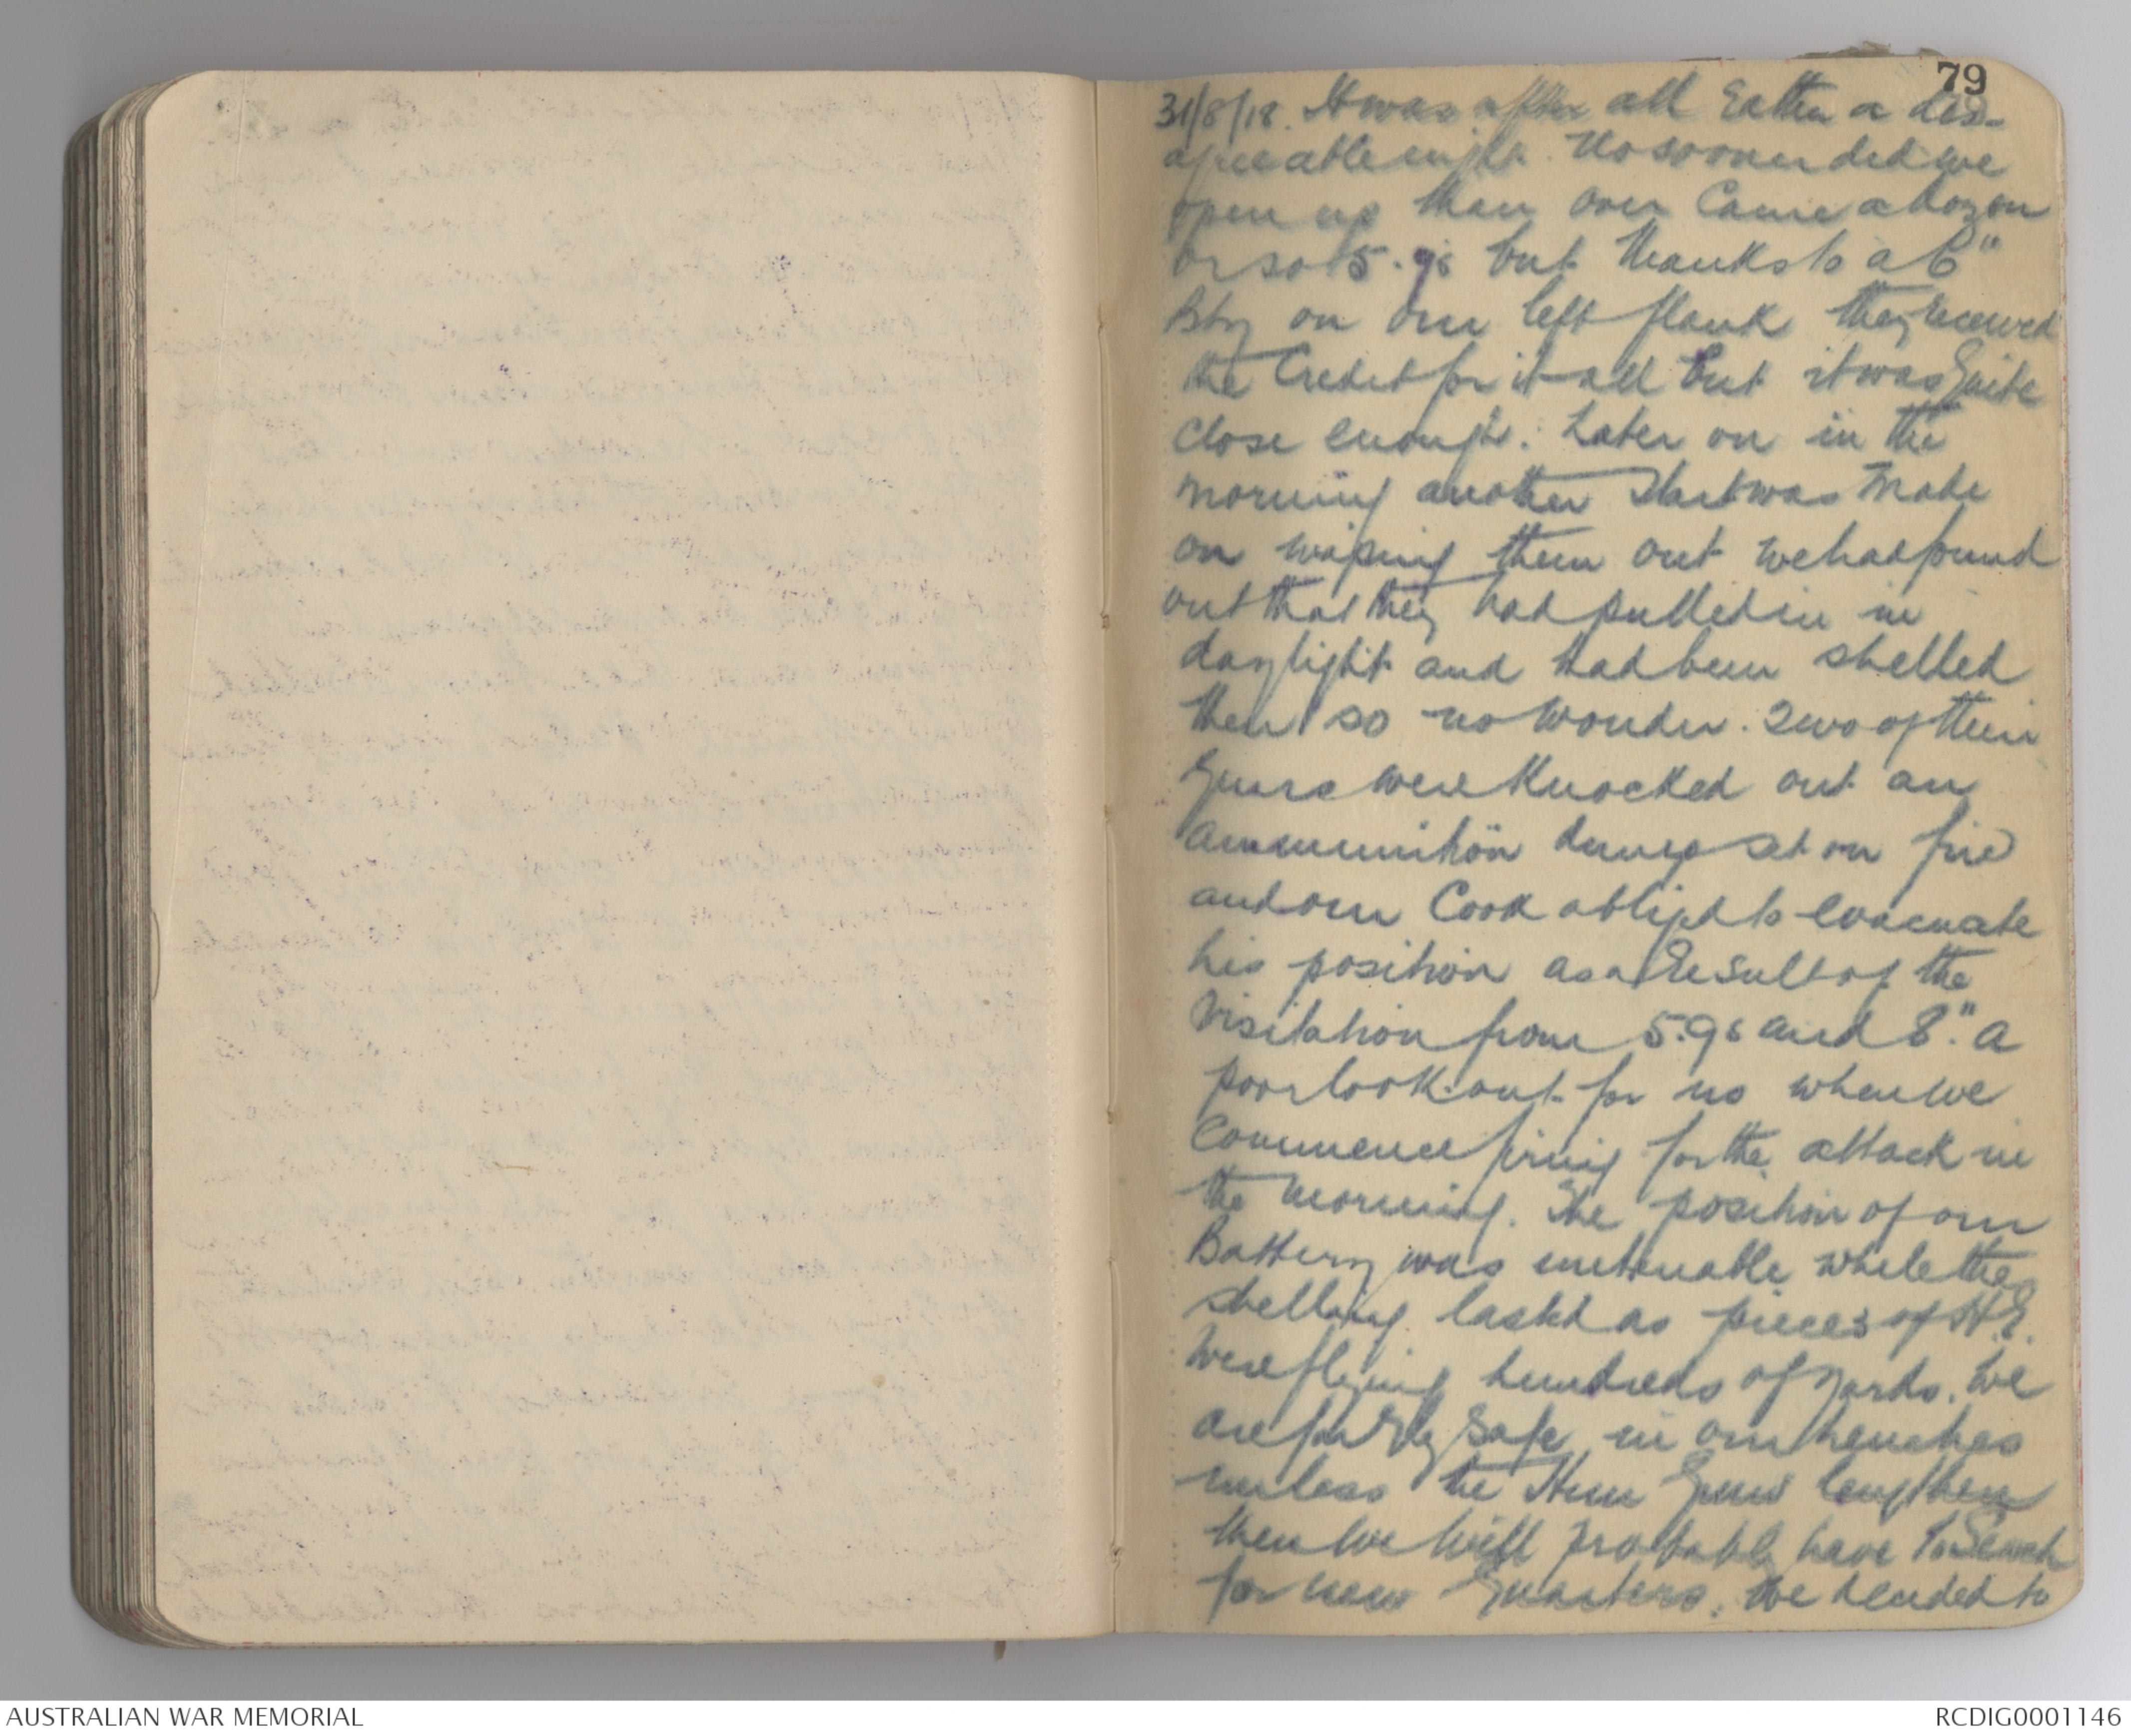 79
31/8/18. It was after all rather a dis-
agreeable night. No sooner did we
open up than over came a dozen
or so 5.9s but thanks to a 6"
Bty on our left flank they received
the credit for it all but it was quite
close enough. Later on in the
morning another start was made
on wiping them out we had found
out that they had pulled in in
daylight and had been shelled
then so no wonder. Two of their
guns were knocked out an
ammunition dump set on fire
and our Cook obliged to evacuate
his position as a result of the
visitation from 5.9s and 8". A
poor look-out for us when we
commence firing for the attack in
the morning. The position of our
Battery was untenable while the
shelling lasted as pieces of H.E.
were flying hundreds of yards. We
are fairly safe in our trenches
unless the Hun guns lengthen
then we will probably have to search
for new quarters. We decided to
AUSTRALIAN WAR MEMORIAL
RCDIG0001146